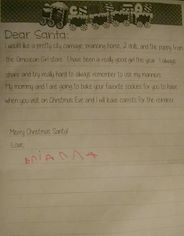 Dear Santa:
I would like a pretty city carriage, prancing horse, 2 dolls, and the puppy from
the American Girl store. I have been a really good girl this year. I always
share and try really hard to always remember to use my manners.
My mommy and I are going to bake your favorite cookies for you to have
when you visit on Christmas Eve and I will leave carrots for the reindeer.
Merry Christmas Santa!
Love,